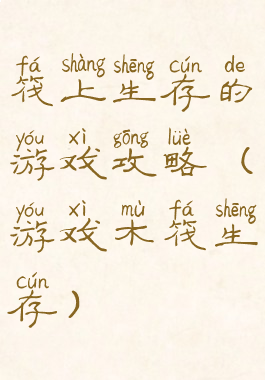 fá shàng shēng cún de
筏上生存的
yóu xì gōng lüè
游戏攻略（
yóu xì mù fá shēng
游戏木筏生
cún
存）